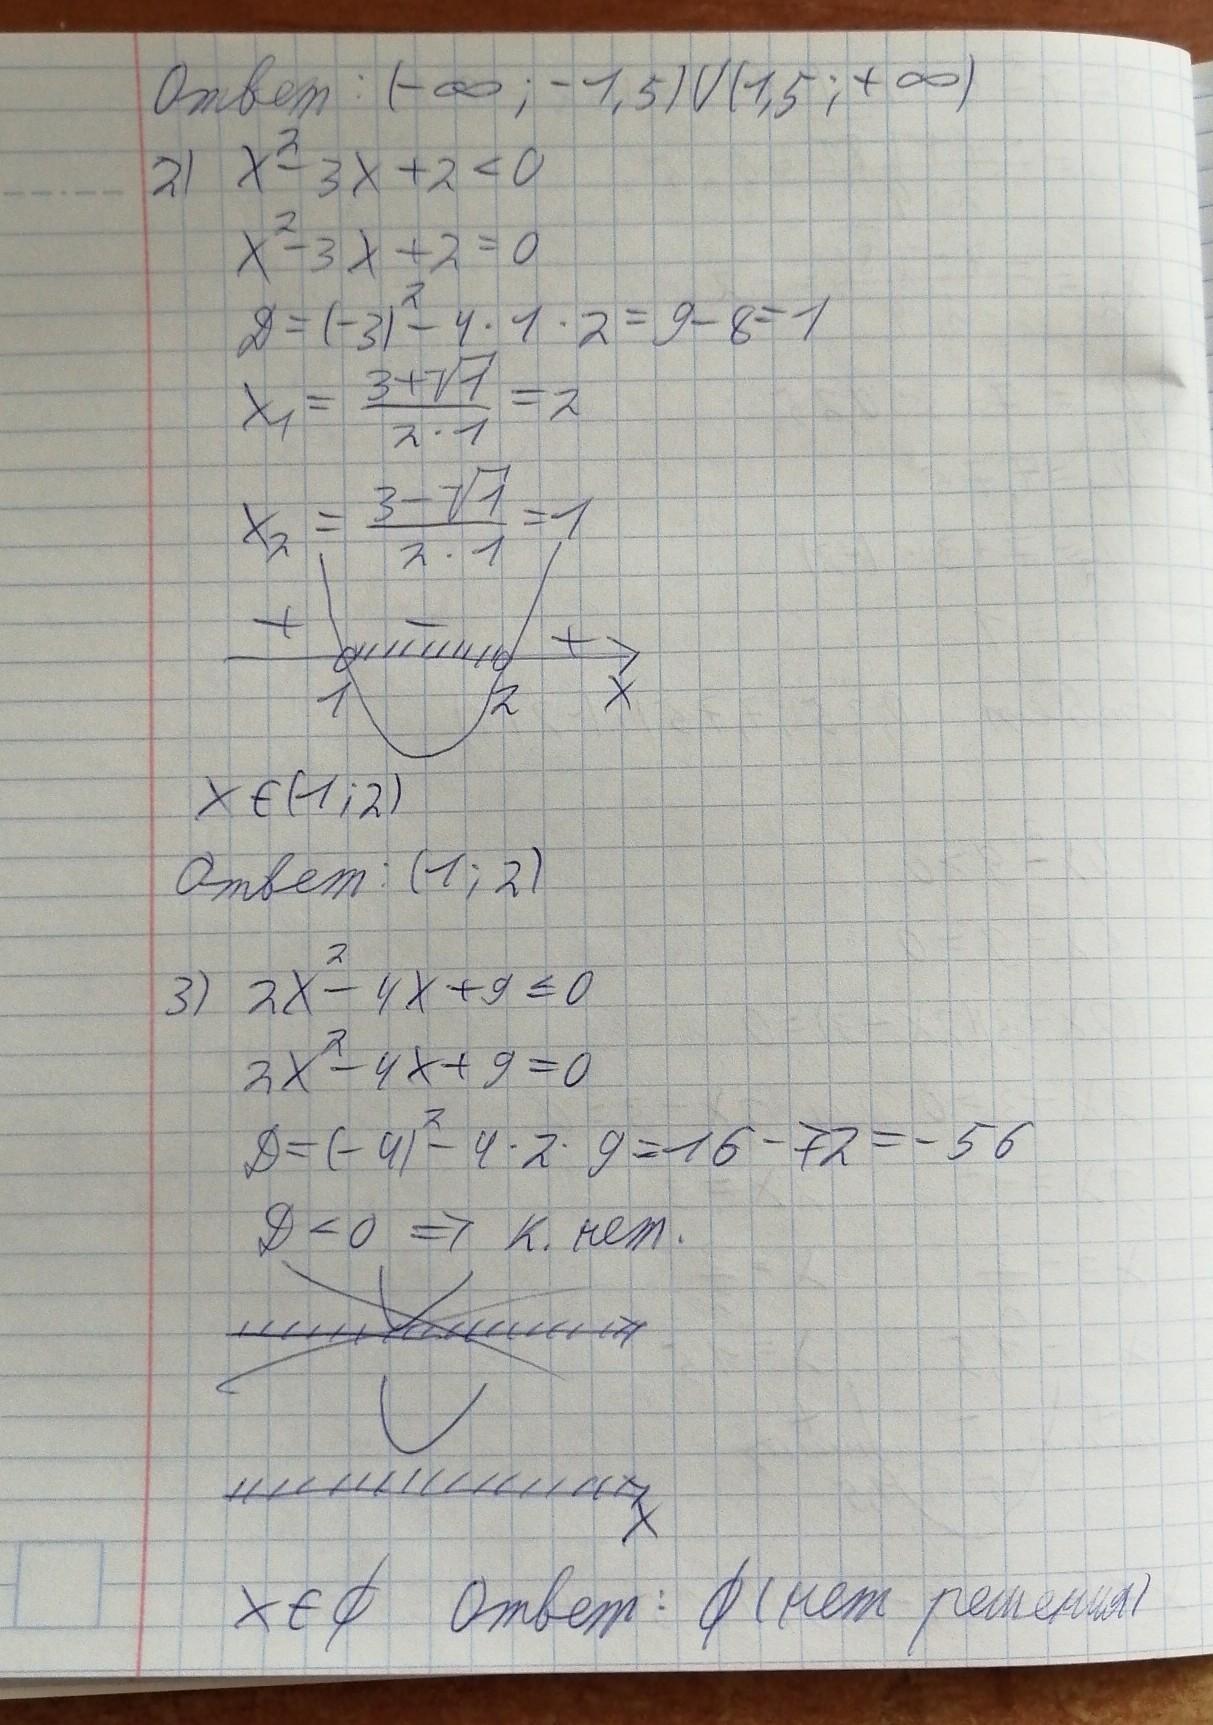 Ответ: (-∞; -1,5)∪(1,5; +∞)
2) x² - 3x + 2 < 0
x² - 3x + 2 = 0
D = (-3)² - 4 · 1 · 2 = 9 - 8 = 1
x₁ = (3 + √1)/(2 · 1) = 2
x₂ = (3 - √1)/(2 · 1) = 1
+ − +
1 2 x
x ∈ (1; 2)
Ответ: (1; 2)
3) 2x² - 4x + 9 ≤ 0
2x² - 4x + 9 = 0
D = (-4)² - 4 · 2 · 9 = 16 - 72 = -56
D < 0 ⇒ к. нет.
x
x ∈ ∅ Ответ: ∅ (нет решения)